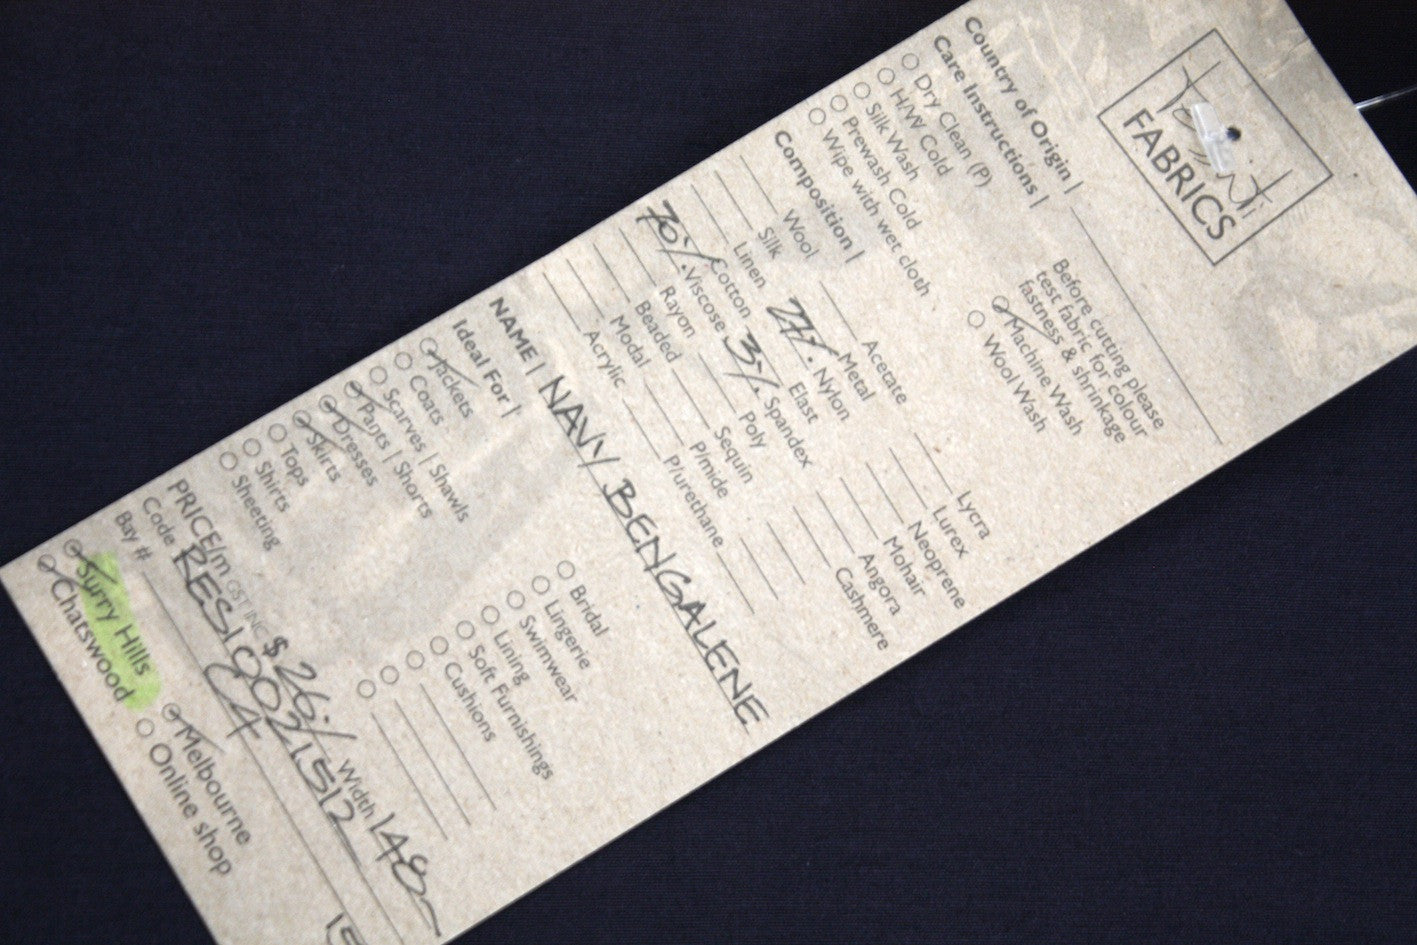 FABRICS
Country of Origin |
Care Instructions |
Dry Clean (P)
H/W Cold
Silk Wash
Prewash Cold
Wipe with wet cloth
Before cutting please
test fabric for colour
fastness & shrinkage
Machine Wash
Wool Wash
Composition |
Wool
Silk
Linen
Cotton
70% Viscose
Rayon
Beaded
Modal
Acrylic
Acetate
Metal
27% Nylon
Elast
3% Spandex
Poly
Sequin
P/mide
P/urethane
Lycra
Lurex
Neoprene
Mohair
Angora
Cashmere
NAME | NAVY BENGALENE
Ideal For |
Jackets
Coats
Scarves | Shawls
Pants | Shorts
Dresses
Skirts
Tops
Shirts
Sheeting
Bridal
Lingerie
Swimwear
Lining
Soft Furnishings
Cushions
PRICE/m GST INC $ 26./ Width 148
Code RES1002/1512
Bay # C4
Surry Hills
Chatswood
Melbourne
Online shop